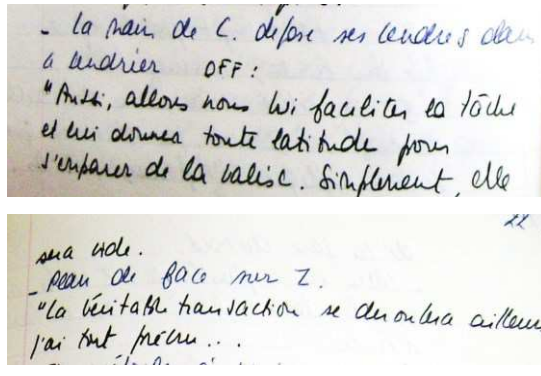 - la main de C. dépose ses cendres dans
le cendrier OFF:
"Aussi, allons nous lui faciliter la tâche
et lui donner toute latitude pour
s'emparer de la valise. Simplement, elle
22
sera vide.
- Plan de face sur Z.
"La véritable transaction se déroulera ailleurs
j'ai tout prévu...